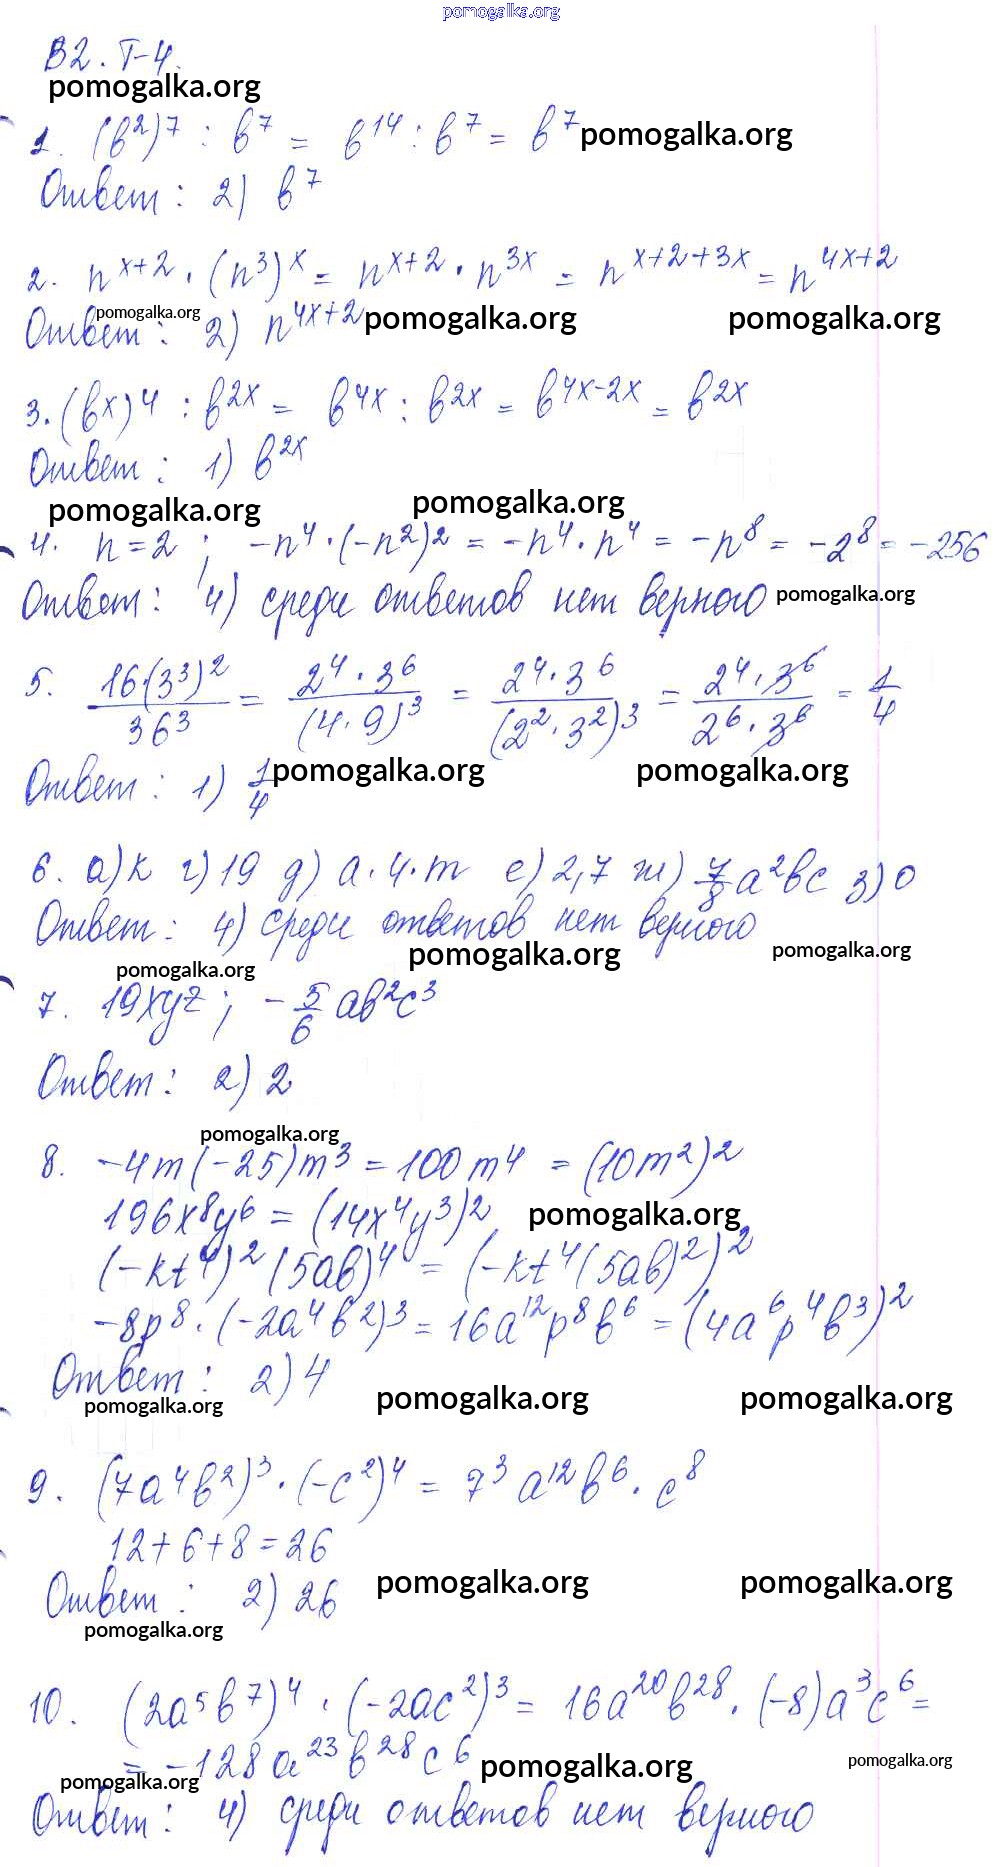 pomogalka.org
В2. Т-4.
pomogalka.org
1. (b²)⁷ : b⁷ = b¹⁴ : b⁷ = b⁷ pomogalka.org
Ответ: 2) b⁷
2. n^(x+2) · (n³)^x = n^(x+2) · n^(3x) = n^(x+2+3x) = n^(4x+2)
pomogalka.org
Ответ: 2) n^(4x+2) pomogalka.org pomogalka.org
3. (b^x)⁴ : b^(2x) = b^(4x) : b^(2x) = b^(4x-2x) = b^(2x)
Ответ: 1) b^(2x)
pomogalka.org pomogalka.org
4. n = 2; -n⁴ · (-n²)² = -n⁴ · n⁴ = -n⁸ = -2⁸ = -256
Ответ: 4) среди ответов нет верного pomogalka.org
5. 16·(3³)²/36³ = 2⁴·3⁶/(4·9)³ = 2⁴·3⁶/(2²·3²)³ = 2⁴·3⁶/2⁶·3⁶ = 1/4
Ответ: 1) 1/4 pomogalka.org pomogalka.org
6. а) k г) 19 д) a·4·m е) 2,7 ж) 7/8 a²bc з) 0
Ответ: 4) среди ответов нет верного
pomogalka.org pomogalka.org pomogalka.org
7. 19xyz; -5/6 ab²c³
Ответ: 2) 2
pomogalka.org
8. -4m(-25)m³ = 100m⁴ = (10m²)²
196x⁸y⁶ = (14x⁴y³)² pomogalka.org
(-kt⁴)²(5ab)⁴ = (-kt⁴(5ab)²)²
-8p⁸ · (-2a⁴b²)³ = 16a¹²p⁸b⁶ = (4a⁶p⁴b³)²
Ответ: 2) 4
pomogalka.org pomogalka.org pomogalka.org
9. (7a⁴b²)³ · (-c²)⁴ = 7³a¹²b⁶ · c⁸
12+6+8=26
Ответ: 2) 26 pomogalka.org pomogalka.org
pomogalka.org
10. (2a⁵b⁷)⁴ · (-2ac²)³ = 16a²⁰b²⁸ · (-8)a³c⁶ =
= -128a²³b²⁸c⁶ pomogalka.org pomogalka.org
pomogalka.org
Ответ: 4) среди ответов нет верного